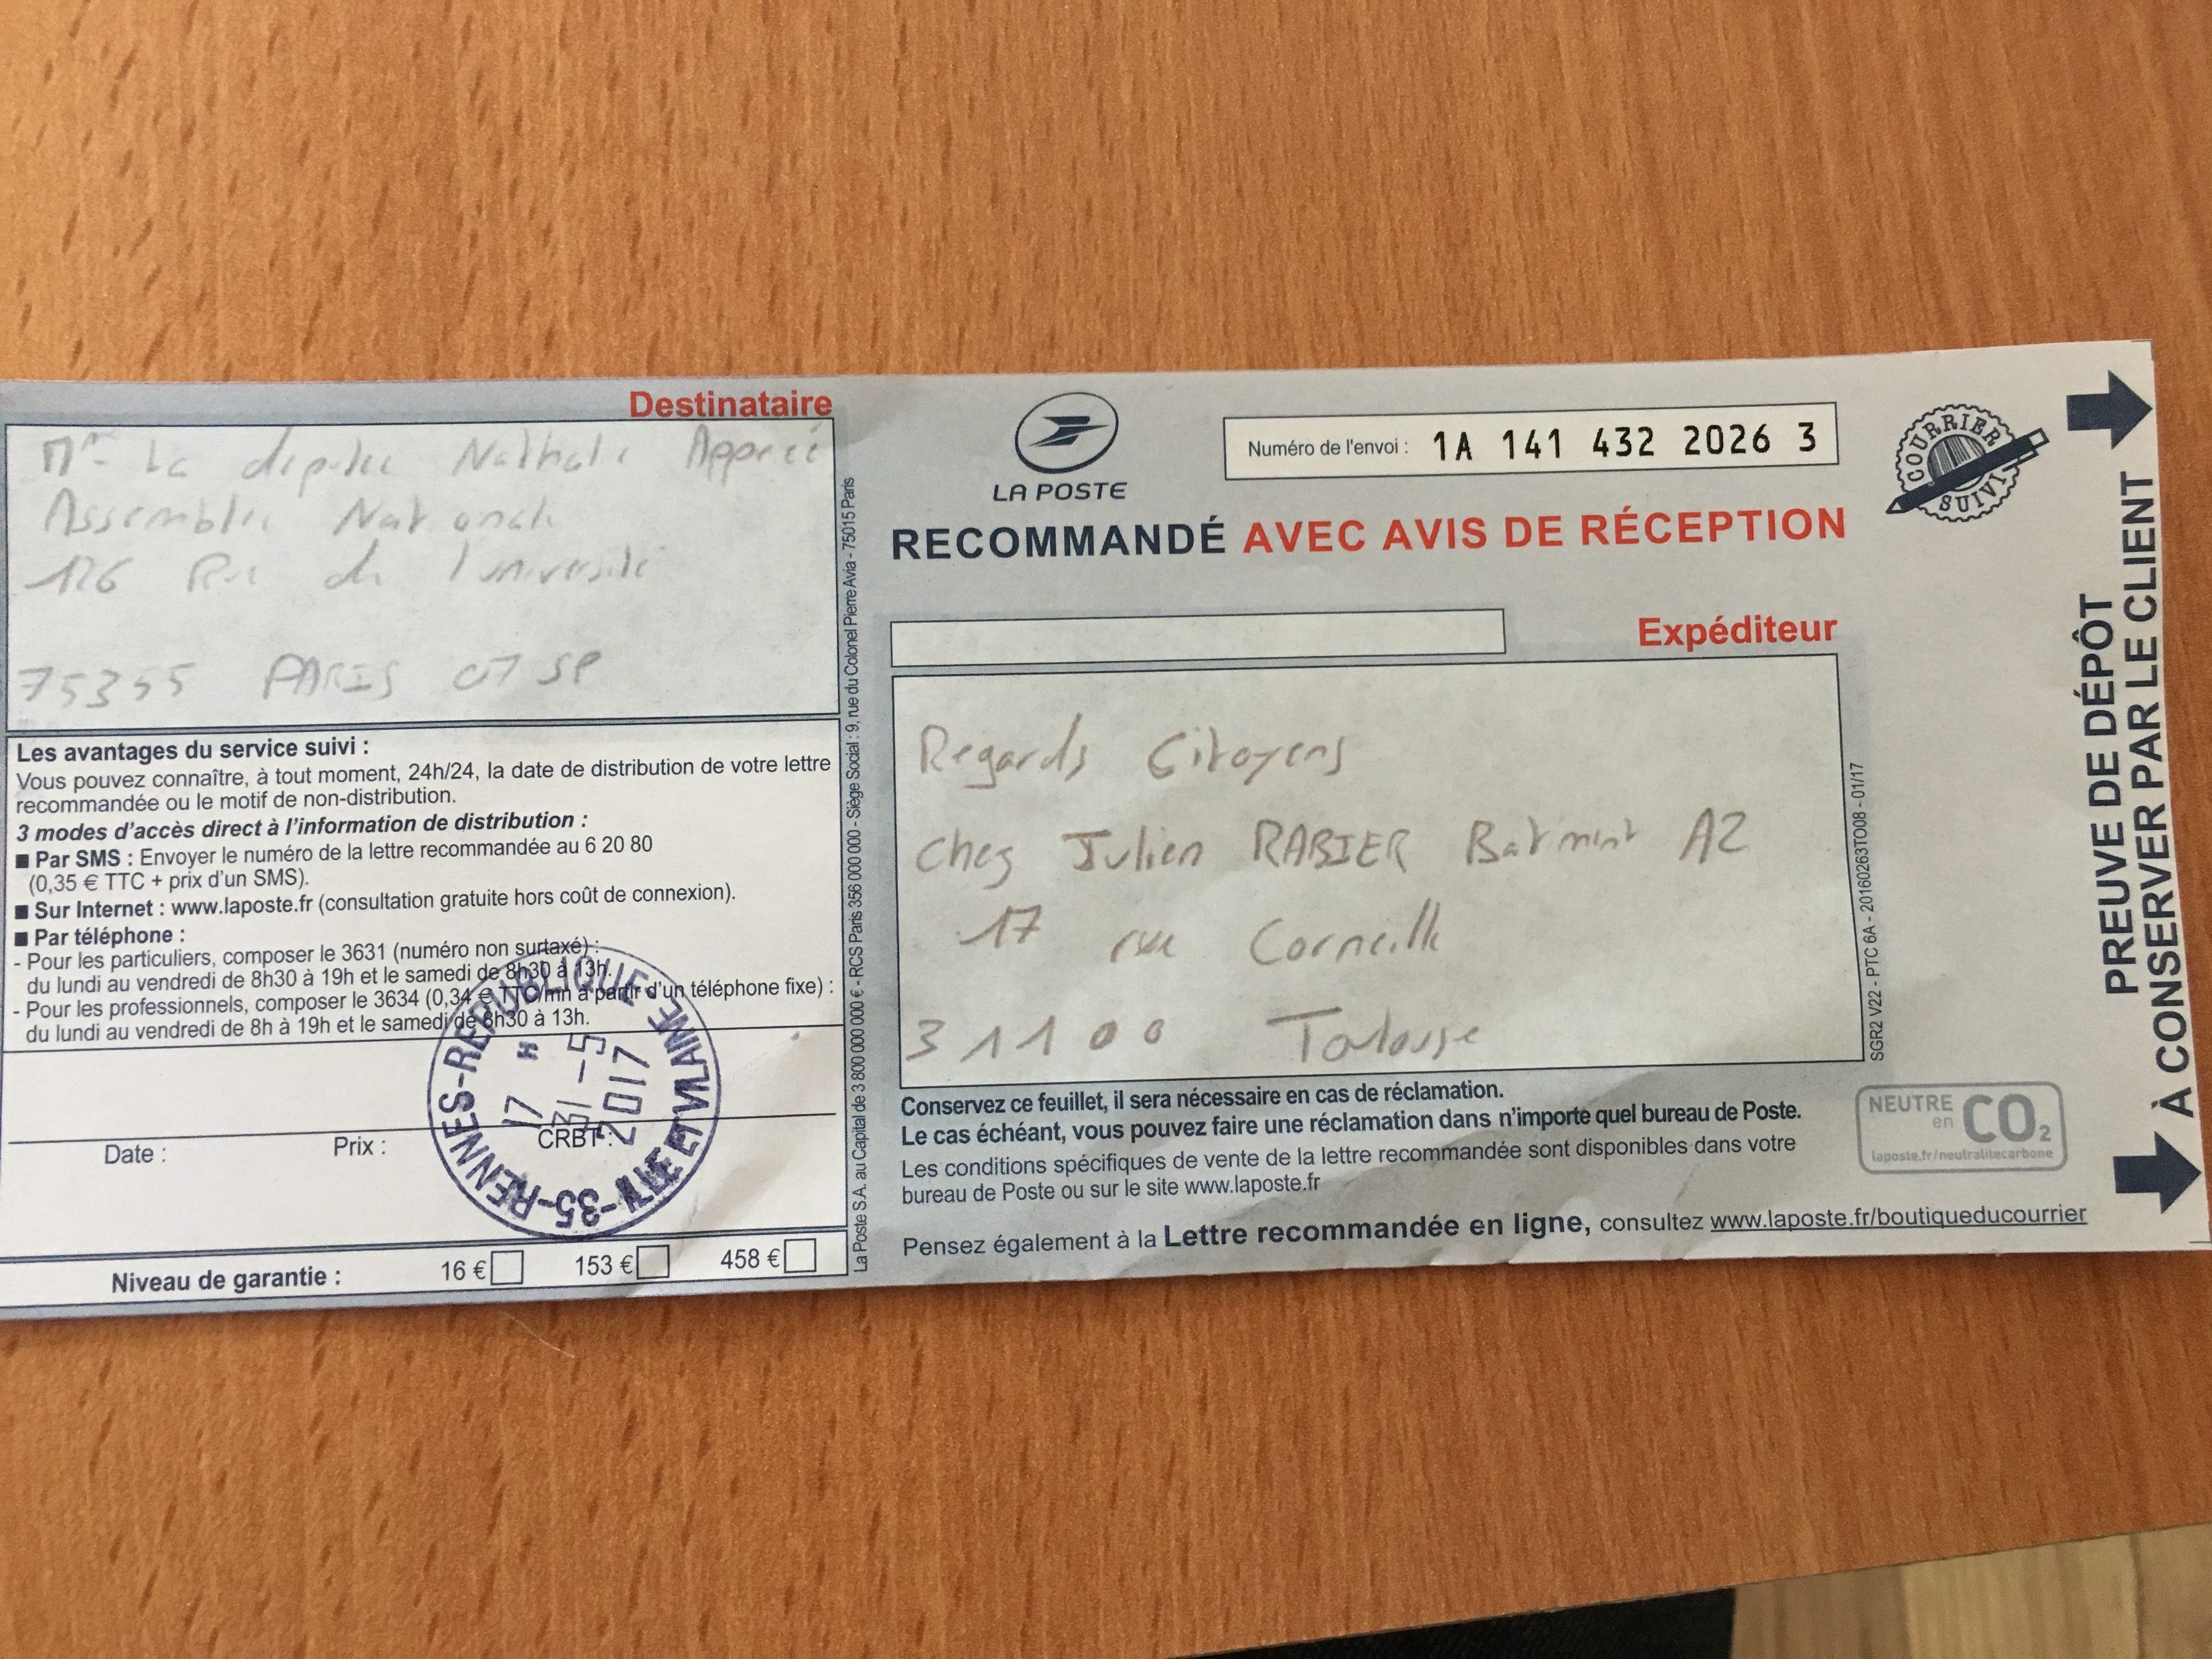 Destinataire
Mme La députée Nathalie Apperé
Assemblée Nationale
126 Rue de l'université
75355 PARIS 07 SP
Les avantages du service suivi :
Vous pouvez connaître, à tout moment, 24h/24, la date de distribution de votre lettre
recommandée ou le motif de non-distribution.
3 modes d'accès direct à l'information de distribution :
■ Par SMS : Envoyer le numéro de la lettre recommandée au 6 20 80
(0,35 € TTC + prix d'un SMS).
■ Sur Internet : www.laposte.fr (consultation gratuite hors coût de connexion).
■ Par téléphone :
- Pour les particuliers, composer le 3631 (numéro non surtaxé) :
du lundi au vendredi de 8h30 à 19h et le samedi de 8h30 à 13h.
- Pour les professionnels, composer le 3634 (0,34 € TTC/mn à partir d'un téléphone fixe) :
du lundi au vendredi de 8h à 19h et le samedi de 8h30 à 13h.
Date : Prix : CRBT :
35-RENNES-REPUBLIQUE
ILLE ET VILAINE
17 H
31-5
2017
Niveau de garantie : 16 € 153 € 458 €
La Poste S.A. au Capital de 3 800 000 000 € - RCS Paris 356 000 000 - Siège Social : 9, rue du Colonel Pierre Avia - 75015 Paris
LA POSTE
Numéro de l'envoi : 1A 141 432 2026 3
COURRIER SUIVI
RECOMMANDÉ AVEC AVIS DE RÉCEPTION
Expéditeur
Regards Citoyens
chez Julien RABIER Batiment A2
17 rue Corneille
31100 Toulouse
SGR2 V22 - PTC 6A - 20160263TO08 - 01/17
Conservez ce feuillet, il sera nécessaire en cas de réclamation.
Le cas échéant, vous pouvez faire une réclamation dans n'importe quel bureau de Poste.
Les conditions spécifiques de vente de la lettre recommandée sont disponibles dans votre
bureau de Poste ou sur le site www.laposte.fr
Pensez également à la Lettre recommandée en ligne, consultez www.laposte.fr/boutiqueducourrier
NEUTRE
en CO₂
laposte.fr/neutralitecarbone
PREUVE DE DÉPÔT
À CONSERVER PAR LE CLIENT